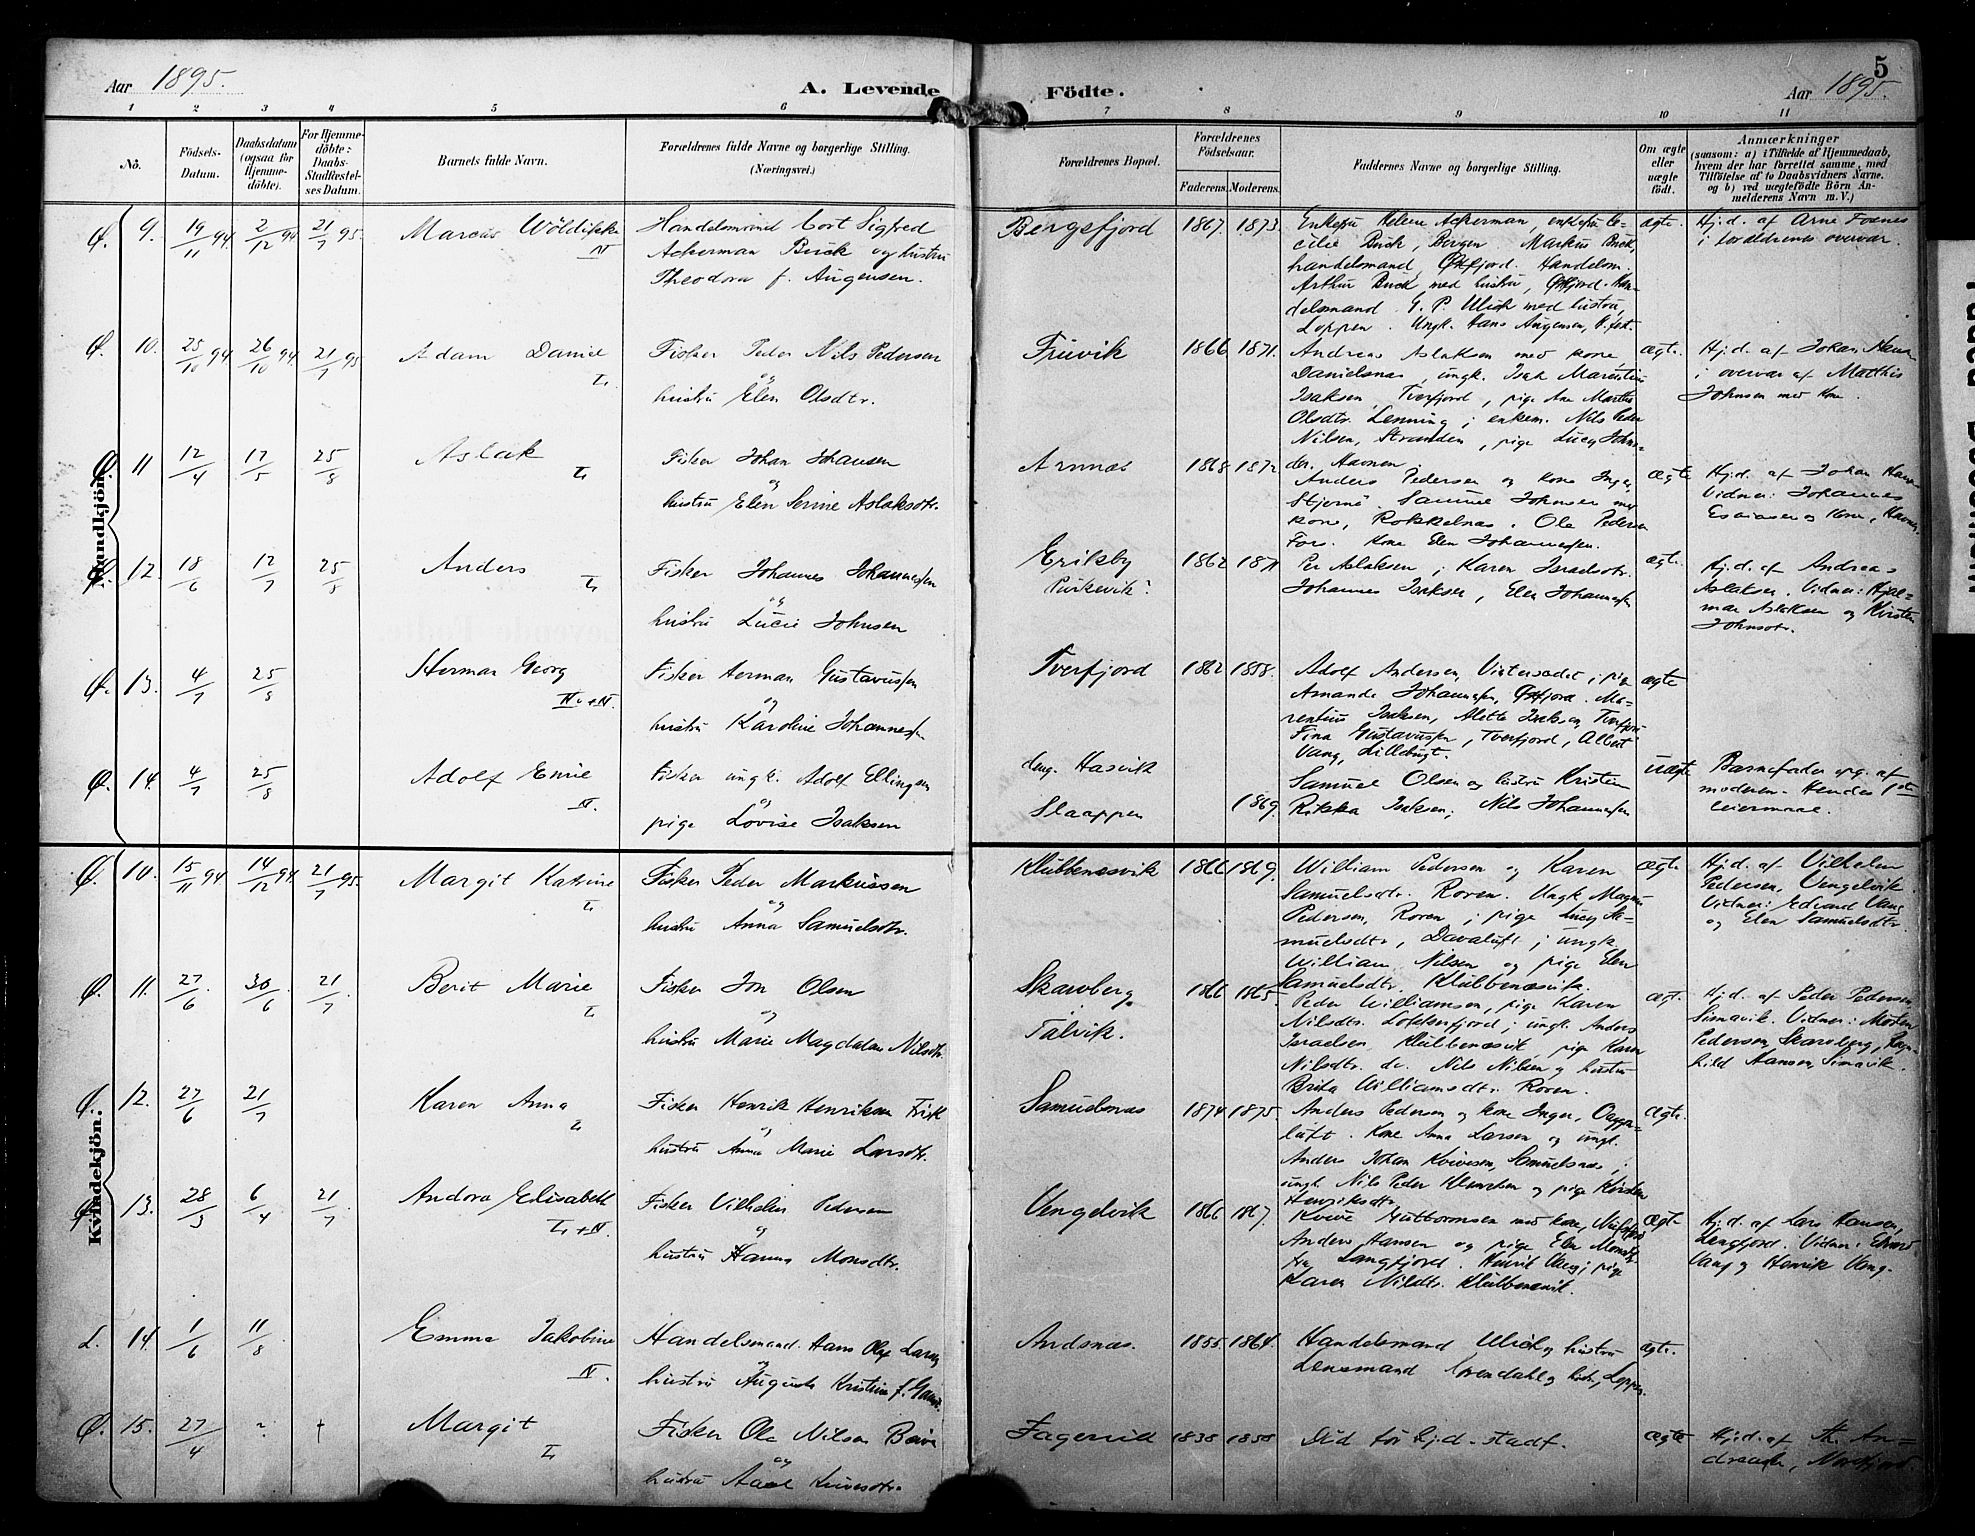 Aar 1895.
A. Levende
Födte.
Aar 1895.
5
1 2 3 4 5 6 7 8 9 10 11
No.
Födsels-
Datum.
Daabsdatum
(ogsaa for
Hjemme-
döbte).
For Hjemme-
döbte:
Daabs-
Stadfæstel-
ses Datum.
Barnets fulde Navn.
Forældrenes fulde Navne og borgerlige Stilling.
(Næringsvei.)
Forældrenes Bopæl.
Forældrenes
Födselsaar.
Faderens. Moderens.
Faddernes Navne og borgerlige Stilling.
Om ægte
eller
uægte
födt.
Anmærkninger
(saasom: a) i Tilfælde af Hjemmedaab,
hvem der har forrettet samme, med
Tilföielse af to Daabsvidners Navne,
og b) ved uægtefödte Börn An-
melderens Navn m. V.)
Mandkjön.
Ø. 9. 19/11 94 2/12 94 21/7 95. Marcus
IV
Handelsmand Cort Sigfred
Ackerman Buck og hustru
Theodora f. Augensen.
Bergsfjord 1867. 1873.
Enkefru Helene Ackerman, enkefru Ce-
cilie Buck, Bergen. Markus Buck
handelsmand, Øxfjord. Handelsm.
Arthur Buck med hustru, Øxfjord. Han-
delsmand G. P. Ulich med hustru,
Loppen. Ungk. Hans Augensen,
ægte.
Hj.d. af Arne Fosnes
i forældrenes overvær.
Ø. 10. 25/10 94 26/10 94. 21/7 95 Adam Daniel
L.
Fisker Peder Nils Pedersen
og
hustru Elen Olsdtr.
Fruvik 1866 1871.
Andreas Aslaksen med kone
Danielsnæs, ungk. Isak Marentius
Isaksen, Tverfjord, pige Ane Marthe
Olsdtr. Lenning; enkem. Nils Peder
Nilsen, Stranden, pige Lucy Johns-
dtr. Havnen.
ægte.
Hj.d. af Johan Hansen
i overvær af Matthis
Johnsen med kone.
Ø. 11 12/4 17/5 25/8 Aslak
L.
Fisker Johan Johansen
og
hustru Elen Serine Aslaksdtr.
Arnnæs 1868 1872
Anders Pedersen og kone Inger,
Stjernö. Samuel Johnsen med
kone, Rokkelnæs. Ole Pedersen
Fors. kone Elen Johannessen.
ægte
Hj.d. af Johan Hansen
Vidner: Johannes
Esaiasen og Kone, Havnen
Ø. 12. 18/6 12/7 25/8 Anders
L.
Fisker Johannes Johannessen
og
hustru Lucie Johnsen
Eriksby 1862 1871
Per Aslaksen; Karen Israelsdtr.
Johannes Isaksen, Elen Johannessen
ægte.
Hj.d. af Andreas
Aslaksen. Vidner: Hjal-
mar Aslaksen og Kirsten
Johnsdtr.
Ø. 13. 4/7 25/8 Herman Georg
Fisker Herman Gustavussen
og
hustru Karoline Johannessen
Tverfjord 1862 1858.
Adolf Andersen, Vintersædet; pige
Amanda Johannessen, Øxfjord. Ma-
rentius Isaksen, Alette Isaksen, Tverfjord
Fina Gustavussen, Tverfjord, Albert
Vang, Lillebugt.
ægte
Ø. 14. 4/7 25/8 Adolf Emil
IV.
Fisker ungk. Adolf Ellingsen
og
pige Lovise Isaksen
Hasvik
Slaappen 1869.
Samuel Olsen og hustru Kristine
Rikka Isaksen; Nils Johannessen
uægte
Barnefader opg. af
moderen. Hendes 1ste
leiermaal.
Kvindekjön.
Ø. 10. 15/11 94 14/12 94. 21/7 95. Margit Katrine
L.
Fisker Peder Markussen
og
hustru Anna Samuelsdtr.
Klubbenæsvik 1866 1869.
William Pedersen og Karen
Samuelsdtr. Roren. Ungk. Magnus
Pedersen, Roren; pige Lucy Sa-
muelsdtr, Davaluft; ungk.
William Nilsen og pige Elen
Samuelsdtr. Klubbenæsvik.
ægte.
Hj.d. af Vilhelm
Pedersen, Vengelvik.
Vidner: Edvard Vang
og Elen Samuelsdtr.
Ø. 11. 27/6 30/6 21/7 Berit Marie
L.
Fisker Jon Olsen
og
hustru Marie Magdalene Nilsdtr.
Skavberg
Talvik. 1866 1865.
Peder Williamsen, pige Karen
Nilsdtr. ungk. Anders
Israelsen Klubbenæsvik pige Karen
Nilsdtr. do. Nils Nilsen og hustru
Brita Williamsdtr. Roren.
ægt.
Hj.d. af Peder Pedersen,
Simavik. Vidner: Morten
Pedersen, Skavberg, Ragn-
hild Hansen, Simavik.
Ø. 12. 27/6 21/7 Karen Anna
L.
Fisker Henrik Henriksen
og
hustru Anna Marie Larsdtr.
Samuelsnæs 1874 1875.
Anders Pedersen og kone Inger,
luft. Kone Anna Larsen og ungk.
Anders Johan Kvivesen, Samuelsnæs;
ungk. Nils Peder og pige Kirsten
Henriksdtr.
ægte.
13. 28/3 6/4 21/7 Andora Elisabeth
L. + N.
Fisker Vilhelm Pedersen
og
hustru Hanna Monsdtr.
Vengelvik 1866 1867.
Kvive Guttormsen med kone,
Anders Hansen og pige Elen Monsdtr
Langfjord. Henrik Vang; pige
Karen Nilsdtr. Klubbenæsvik.
ægte
Hj.d. af Lars Hansen,
Langfjord. Vidner: Edvard
Vang og Henrik Vang.
L. 14. 1/6 11/8 Emma Jakobine
IV.
Handelsmand. Hans Olaf Larsen
og
hustru Augusta Kristine f.
Andsnæs. 1855. 1864.
Handelsmand Ulich og hustru
Lensmand og hustru, Loppen
ægte.
Ø. 15. 27/4 ? † Margit
L.
Fisker Ole Nilsen
og
hustru
Fagervik 1838 1850
Död før hj.d. stadf.
ægte
Hj.d. af Th. An-
dreassen,